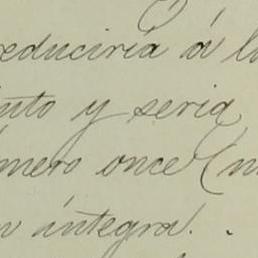 reduciria á l
nto y seria
mero once (n
n íntegra.